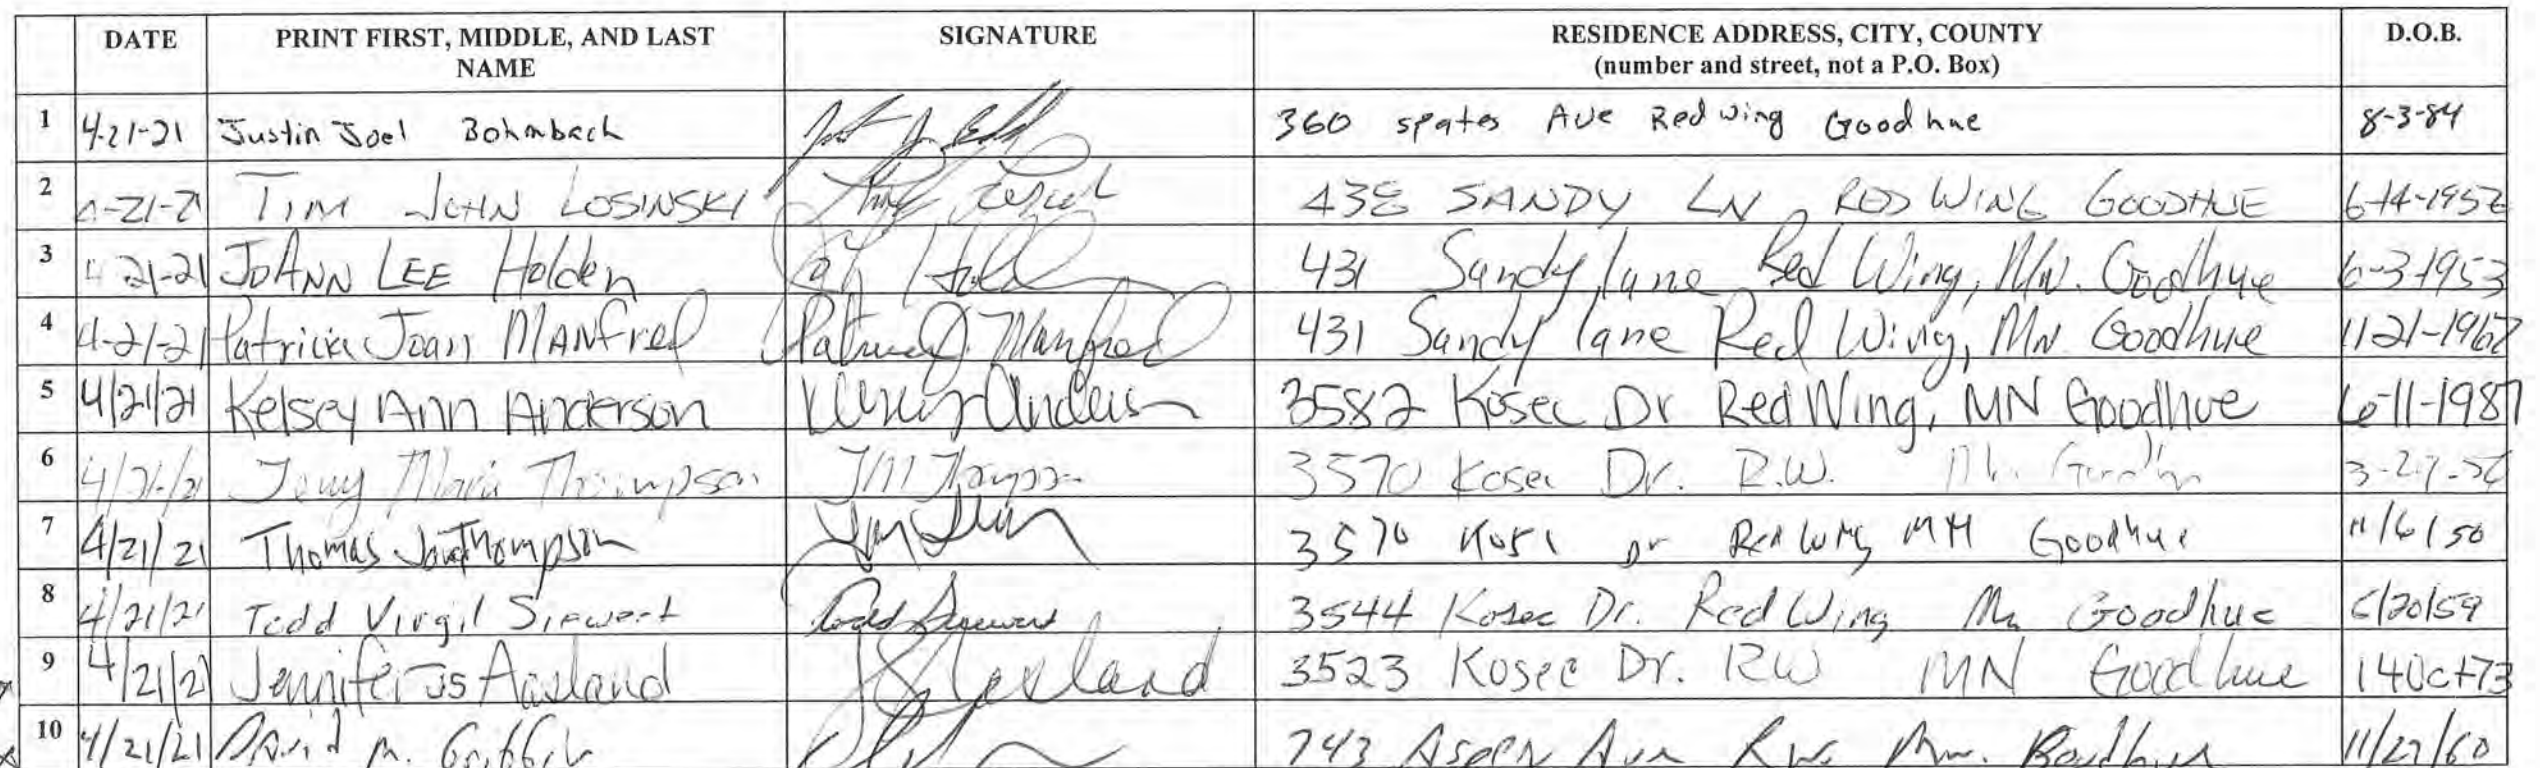 DATE PRINT FIRST, MIDDLE, AND LAST NAME SIGNATURE RESIDENCE ADDRESS, CITY, COUNTY (number and street, not a P.O. Box) D.O.B.
1 4-21-21 Justin Joel Bohmbach 360 spates Ave Red wing Goodhue 8-3-84
2 -21-21 TIM JOHN LOSINSKI 438 SANDY LN RED WING GOODHUE 6-14-1952
3 4-21-21 JOANN LEE Holden 431 Sandy lane Red Wing, MN. Goodhue 6-3-1953
4 4-21-21 Patricia Joan MANfred Patricia J. Manfred 431 Sandy lane Red Wing, MN Goodhue 11-21-1962
5 4/21/21 Kelsey Ann Anderson Kelsey Anderson 3582 Kosec Dr Red Wing, MN Goodhue 6-11-1987
6 4/21/21 Marie Thompson 3570 Kosec Dr. R.W. 3-27-
7 4/21/21 Thomas Thompson 3570 Dr Red Wing MN Goodhue 11/6/50
8 4/21/21 Todd Virgil Siewert Todd Siewert 3544 Kosec Dr. Red Wing Mn Goodhue /20/59
9 4/21/21 Jennifer JS Aasland J S Aasland 3523 Kosec Dr. RW MN Goodhue 14Oct73
10 4/21/21 David M. Griffin 743 Aspen Ave R.W. Mn. Goodhue 11/27/60